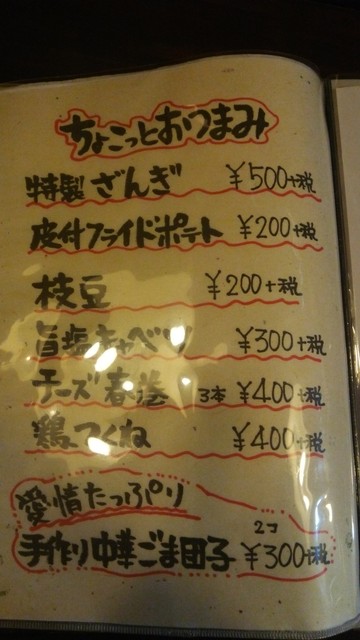 ちょこっとおつまみ
特製 ざんぎ ¥500+税
皮付フライドポテト ¥200+税
枝豆 ¥200+税
旨塩キャベツ ¥300+税
チーズ春巻 3本 ¥400+税
鶏つくね ¥400+税
愛情たっぷり
手作り中華ごま団子 2コ ¥300+税